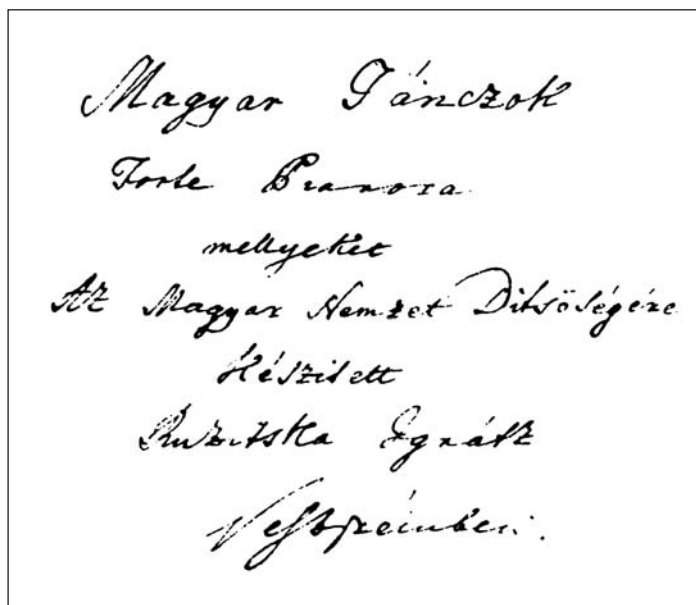 Magyar Tánczok
Forte Pianora
mellyeket
Az Magyar Nemzet Ditsőségére
Készitett
Ruzitska Ignátz
Veszprémben.